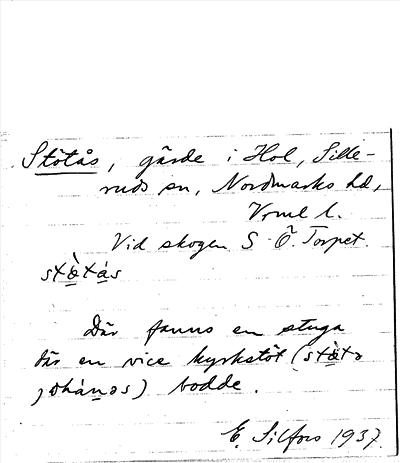 Stötås, gärde i Hol, Sille-
ruds sn, Nordmarks hd,
Vrml l.
Vid skogen S Ö. Torpet.
stø̀tás
Där fanns en stuga
där en vice kyrkstöt (stø̀tə
johánəs) bodde.
E. Silfors 1937.